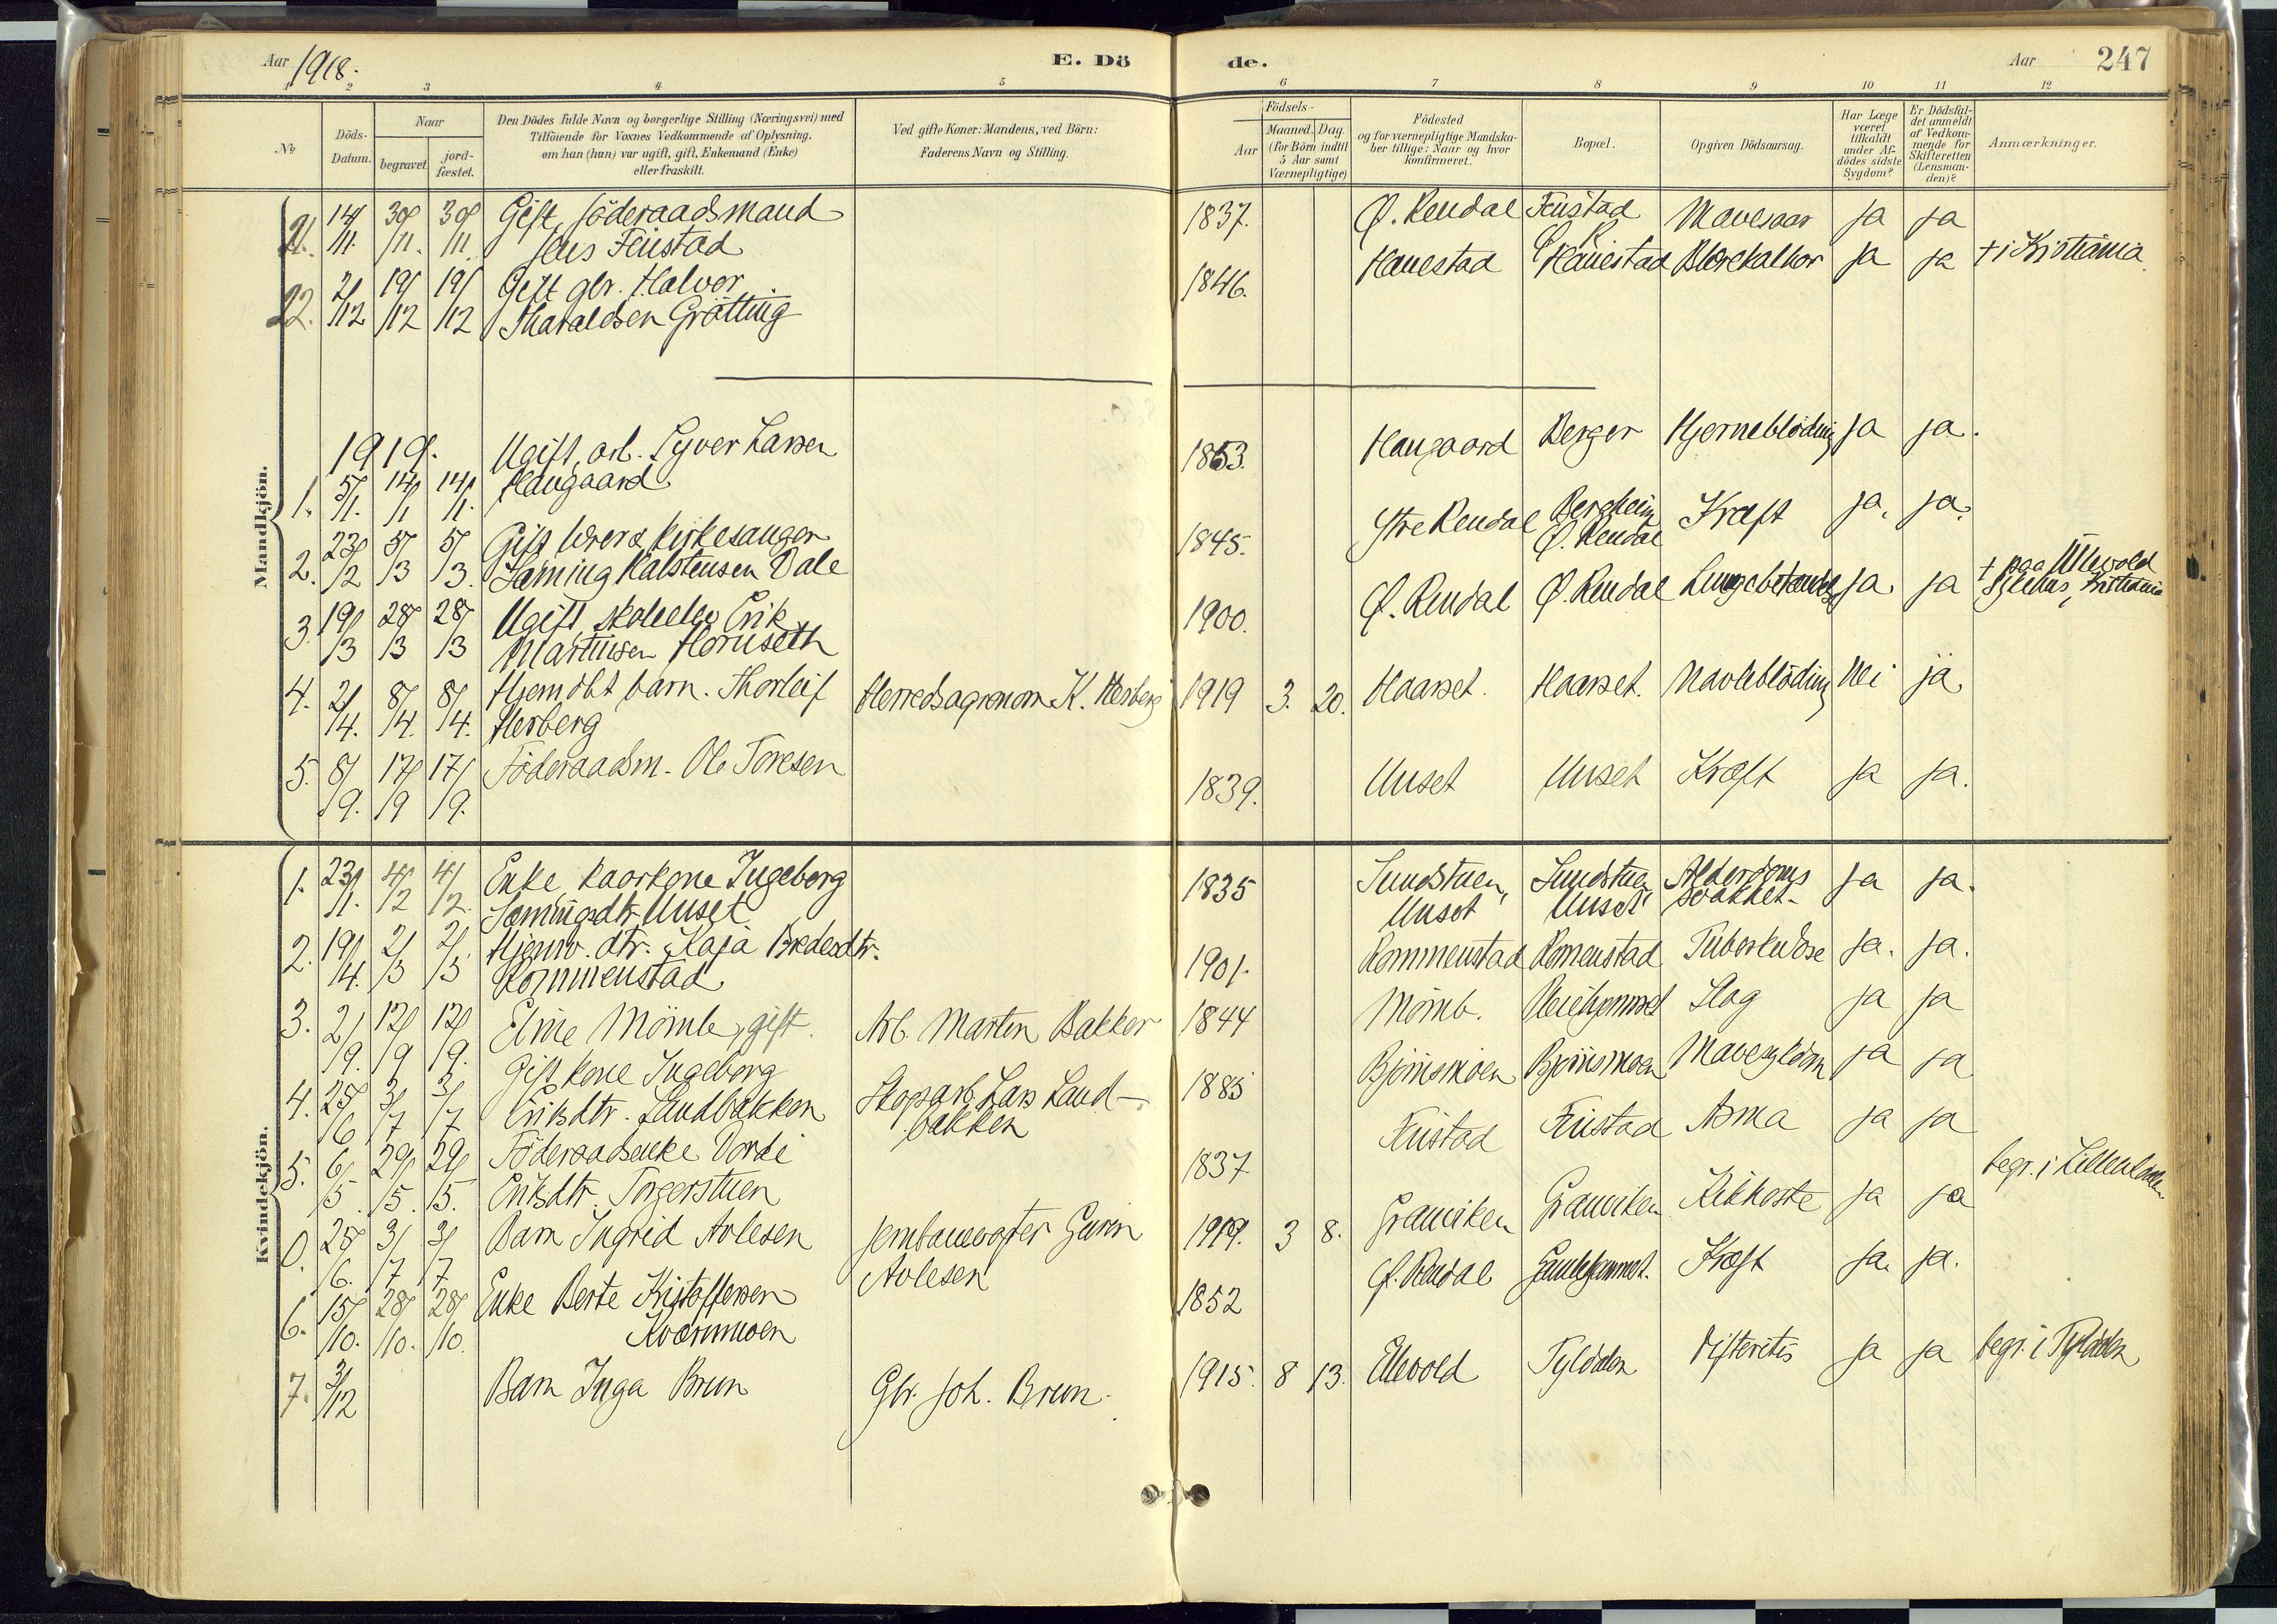 Aar 1918.
E. Dö
de.
Aar 247
1 2 3 4 5 6 7 8 9 10 11 12
№
Döds-Datum.
Naar
begravet.
jord-fæstet.
Den Dödes fulde Navn og borgerlige Stilling (Næringsvei) med
Tilföiende for Voxnes Vedkommende af Oplysning,
om han (hun) var ugift, gift, Enkemand (Enke)
eller fraskilt.
Ved gifte Koner: Mandens, ved Börn:
Faderens Navn og Stilling.
Födsels-
Aar
Maaned. Dag.
(for Börn indtil
5 Aar samt
Værnepligtige)
Födested
og for værnepligtige Mandska-
ber tillige: Naar og hvor
konfirmeret.
Bopæl.
Opgiven Dödsaarsag.
Har Læge
været
tilkaldt
under Af-
dödes sidste
Sygdom?
Er Dödsfal-
det anmeldt
af Vedkom-
mende for
Skifteretten
(Lensman-
den)?
Anmærkninger.
Mandkjön.
21. 14/11. 30/11. 30/11. Gift, föderaadsmand
Jens Finstad 1837. Ø. Rendal Finstad Ø. R. Mavesaar ja ja
22. 2/12 19/12 19/12 Gift gbr. Halvor
Haraldsen Grötting 1846. Hanestad Hanestad Blærekatharr ja ja + i Kristiania
1919. Ugift, arb. Syver Larsen
1. 5/1. 14/1 14/1. Haugaard 1863. Haugaard Berger Hjerneblödning ja ja.
2. 23/2 5/3 5/3. Gift lærer & kirkesanger
Sæming Halstensen Dale 1845. Ytre Rendal Bergheim
Ø. Rendal Kræft ja. ja.
3. 19/3 28/3 28/3 Ugift skoleelev Erik
Martinsen Hornseth 1900. Ø. Rendal Ø. Rendal ja ja + paa Ullevold
Sykehus, Kristiania
4. 2/4. 8/4. 8/4. Hjemdöbt barn. Thorleif
Herberg Herredsagronom K. Herberg 1919 3. 20. Haarset. Haarset. Navleblödning Nei ja
5. 8/9. 17/9 17/9. Föderaadsm. Ole Toresen 1839. Unset Unset Kræft ja ja.
Kvindekjön.
1. 23/1. 4/2 4/2. Enke kaarkone Ingeborg
Sæmingsdtr. Unset 1835 Sundstuen,
Unset Sundstuen
Unset Alderdoms
svakhet. ja ja.
2. 19/4. 2/5 2/5 Hjemv. dtr. Kaja Bredesdtr.
Rommenstad 1901. Rommenstad Romenstad Tuberkulose ja. ja.
3. 2/9. 12/9 12/9. Eline Mömb, gift. Arb. Martin Bakken 1844 Mömb. Slag ja ja
4. 25/6 3/7 3/7 Gift kone Ingeborg
Eriksdtr. Landbakken Skogsarb. Lars Land-
bakken 1885 Björnsmoen Björnsmoen Mavesygdom ja ja
5. 6/5. 29/5. 29/5. Föderaadsenke Dordi
Eriksdtr. Torgerstuen 1837 Finstad Finstad Asma ja ja
0. 25/6. 3/7 3/7 Barn Ingrid Avlesen
Avlesen 1919. 3 8. Granviken Granviken Kikhoste ja ja begr. i
6. 15/10. 28/10. 28/10. Enke Berte Kristoffersen
Kværnmoen 1852 Ø. Rendal Kræft ja. ja.
7. 3/12 Barn Inga Brun Gbr. Joh. Brun. 1915. 8 13. Ellevold Tyldalen Difteritis ja ja begr. i Tyldalen